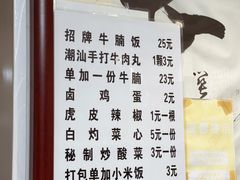 招牌牛腩饭 25元
潮汕手打牛肉丸 1颗3元
单加一份牛腩 23元
卤鸡蛋 2元
虎皮辣椒 1元一根
白灼菜心 5元一份
秘制炒酸菜 3元一份
打包单加小米饭 3元